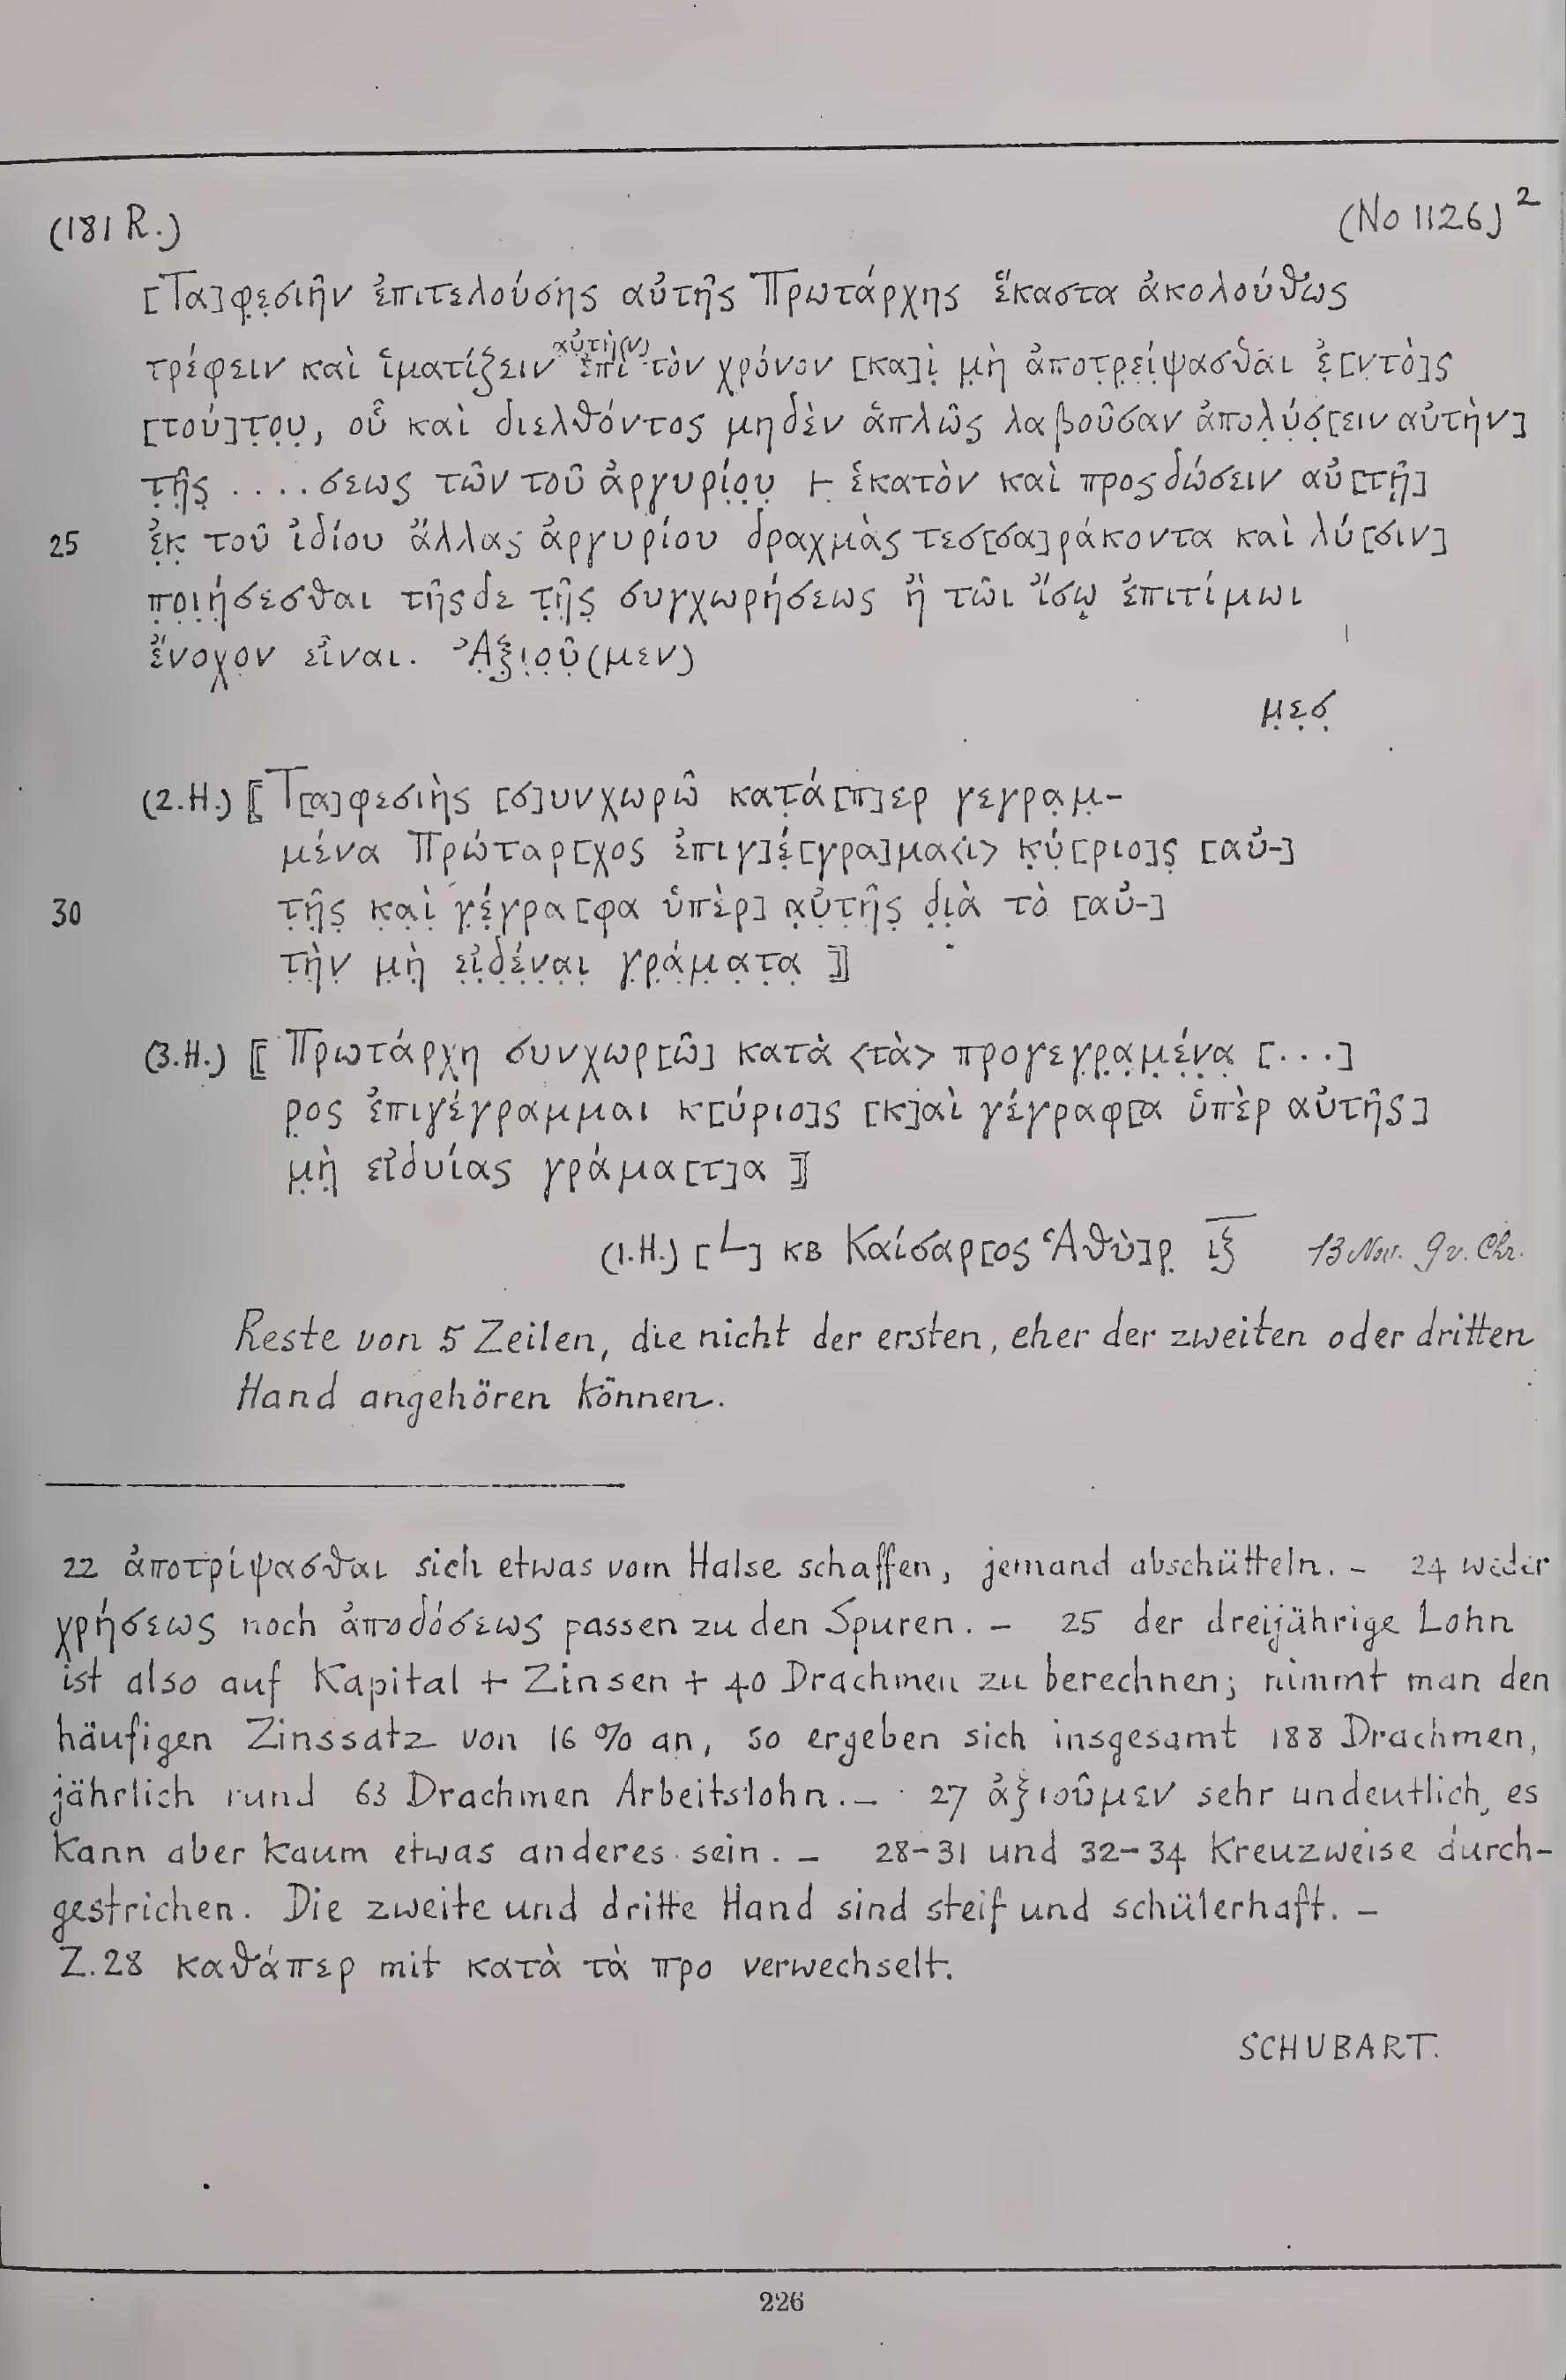 (181 R.) (No 1126)²
[Τα]φ̣ε̣σιῆν ἐπιτελούσης αὐτῆς Πρωτάρχης ἕκαστα ἀκολούθως
αὐτὴ(ν)
τρέφειν καὶ ἱματίζειν ἐπὶ τὸν χρόνον [κα]ὶ̣ μ̣ὴ ἀποτ̣ρ̣ε̣ίψασθαι ἐ̣[ντὸ]ς
[τού]τ̣ο̣υ̣, οὗ καὶ διελθόντος μηδὲν ἁπλῶς λαβοῦσαν ἀπολ̣ύ̣σ̣[ειν αὐτὴν]
τ̣ῆ̣ς̣ ....σεως τῶν τοῦ ἀργυρί̣ο̣υ̣ 𐅂 ἑκατὸν καὶ προσδώσειν αὐ[τῇ]
25 ἐ̣κ̣ τοῦ ἰδίου ἄλλας ἀργυρίου δραχμὰς τεσ[σα]ράκοντα καὶ λύ[σιν]
π̣ο̣ι̣ή̣σεσθαι τῆσδε τ̣ῆ̣ς̣ συγχωρήσεως ἢ τῶι ἴσῳ ἐπιτίμωι
ἔ̣νοχον εἶναι. Ἀ̣ξ̣ι̣ο̣ῦ̣(μεν)
μ̣ε̣σ̣
(2.H.) ⟦Τ[α]φεσιὴς [σ]υνχωρῶ κατά[π]ερ γεγρα̣μ̣-
μένα Πρώταρ[χος ἐπιγ]έ̣[γρα]μα<ι> κ̣ύ̣[ριο]ς̣ [αὐ-]
30 τ̣ῆ̣ς̣ κ̣α̣ὶ̣ γ̣έ̣γρα[φα ὑπὲρ] α̣ὐ̣τ̣ῆ̣ς̣ δ̣ι̣ὰ τὸ [αὐ-]
τ̣ὴ̣ν̣ μ̣ὴ̣ ε̣ἰ̣δ̣έ̣ν̣α̣ι̣ γ̣ρ̣ά̣μ̣α̣τ̣α̣⟧
(3.H.) ⟦Πρωτάρχη συνχωρ[ῶ] κατὰ <τὰ> προγεγ̣ρ̣α̣μ̣έ̣ν̣α̣ [...]
ρ̣ος ἐπιγέγραμμαι κ[ύριο]ς [κ]αὶ γέγραφ[α ὑπὲρ αὐτῆς]
μ̣ὴ̣ εἰδυίας γράμα[τ]α⟧
(1.H.) [L] κβ Καίσαρ[ος Ἁθὺ]ρ̣ ιξ̅ 13 Nov. 9 v. Chr.
Reste von 5 Zeilen, die nicht der ersten, eher der zweiten oder dritten
Hand angehören können.
22 ἀποτρίψασθαι sich etwas vom Halse schaffen, jemand abschütteln. – 24 weder
χρήσεως noch ἀποδόσεως passen zu den Spuren. – 25 der dreijährige Lohn
ist also auf Kapital + Zinsen + 40 Drachmen zu berechnen; nimmt man den
häufigen Zinssatz von 16 % an, so ergeben sich insgesamt 188 Drachmen,
jährlich rund 63 Drachmen Arbeitslohn. – 27 ἀξιοῦμεν sehr undeutlich, es
kann aber kaum etwas anderes sein. – 28–31 und 32–34 kreuzweise durch-
gestrichen. Die zweite und dritte Hand sind steif und schülerhaft. –
Z. 28 καθάπερ mit κατὰ τὰ προ verwechselt.
SCHUBART.
226